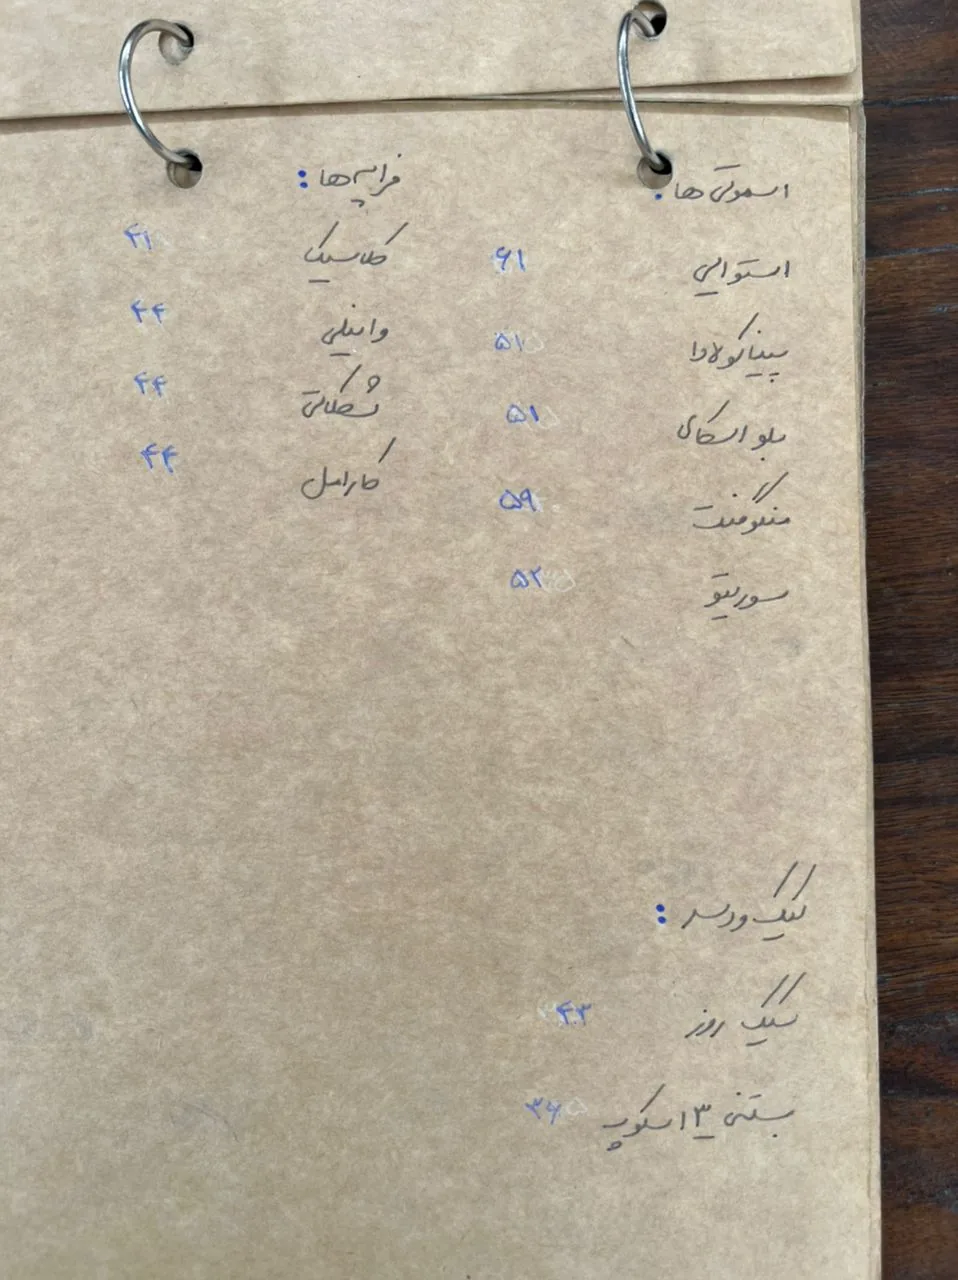 اسموتی ها:
استوایی ۶۱
پیناکولادا ۵۱
بلو اسکای ۵۱
منگومنت ۵۹
سوربتو ۵۲
فراپه ها:
کلاسیک ۴۱
وانیلی ۴۴
شکلاتی ۴۴
کارامل ۴۴
کیک و دسر:
کیک روز ۴۳
بستنی ۳ اسکوپ ۳۶